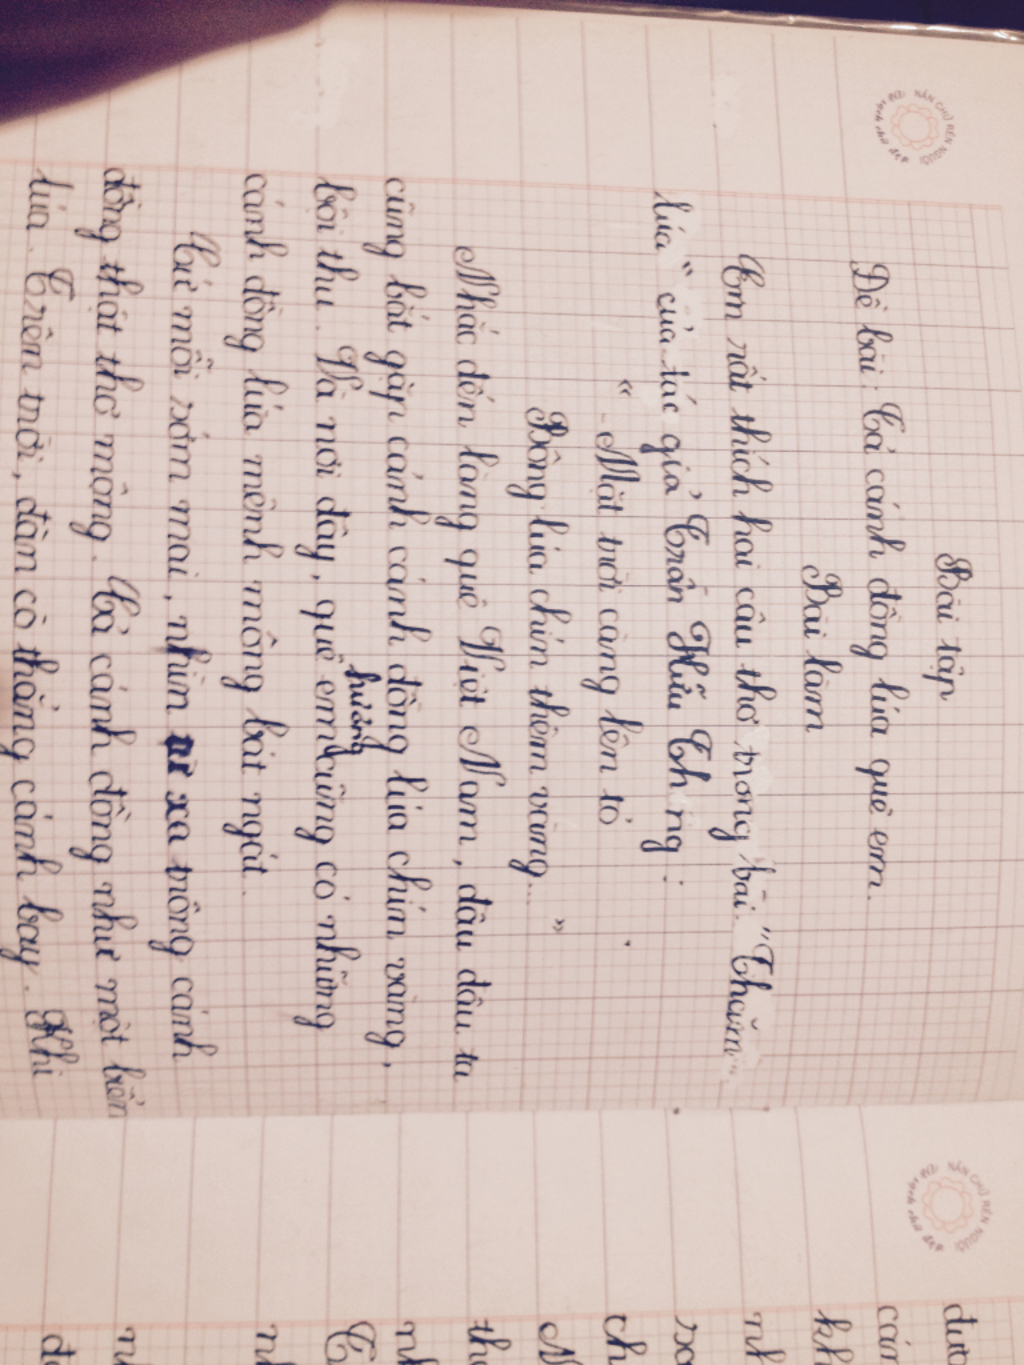 Bài tập
Đề bài: Tả cánh đồng lúa quê em.
Bài làm
Em rất thích hai câu thơ trong bài "Thăm
lúa" của tác giả Trần Hữu Th ng:
"Mặt trời càng lên tỏ
Bông lúa chín thêm vàng..."
Nhắc đến làng quê Việt Nam, đâu đâu ta
cũng bắt gặp cánh cánh đồng lúa chín vàng,
bội thu. Và nơi đây, quê hương em cũng có những
cánh đồng lúa mênh mông bát ngát.
Cứ mỗi sớm mai, nhìn từ xa trông cánh
đồng thật thơ mộng. Cả cánh đồng như một biển
lúa. Trên trời, đàn cò thẳng cánh bay. Khi
NẮN CHỮ RÈN NGƯỜI
NẮN CHỮ RÈN NGƯỜI
đượ
cán
kh
nh
xa
ch
N
thơ
nh
T
nh
nh
đ